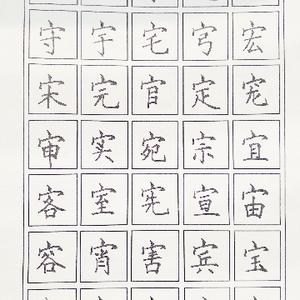 守宇宅宏
宋完官定宠
审实宛宗宜
客室宪宣宙
容宵害宾宝